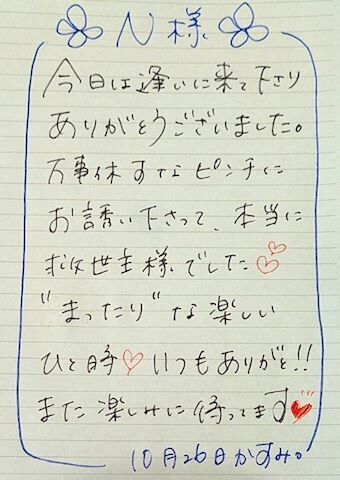 N様
今日は逢いに来て下さり
ありがとうございました。
万事休すなピンチに
お誘い下さって、本当に
救世主様でした
"まったり"な楽しい
ひと時 いつもありがと!!
また楽しみに待ってます
10月26日かすみ。